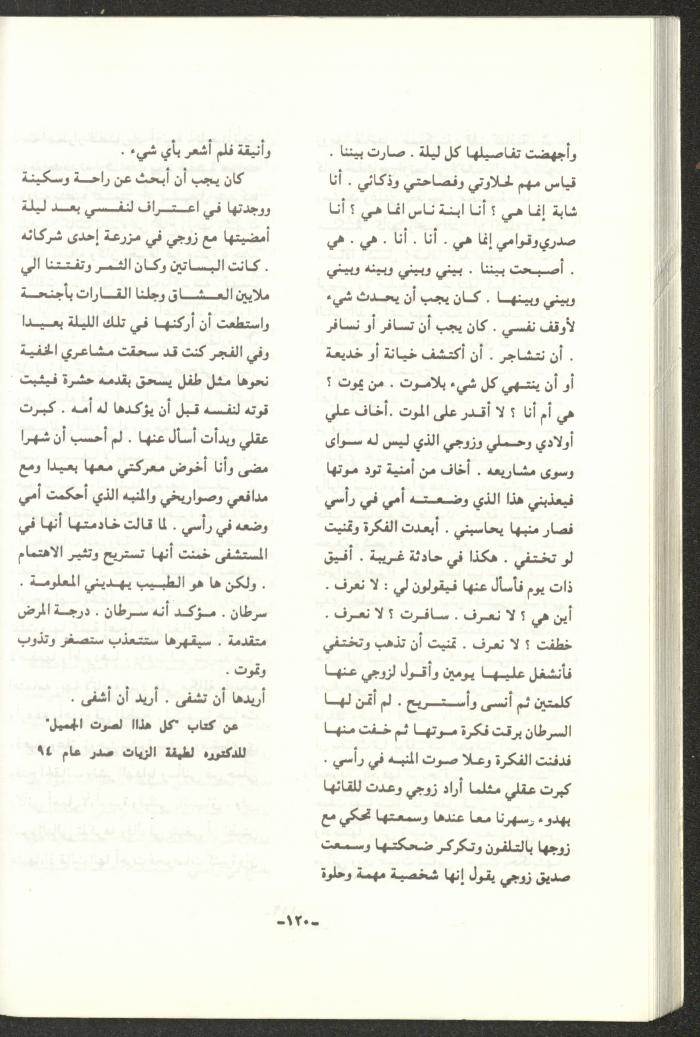 وأجهضت تفاصيلها كل ليلة . صارت بيننا .
قياس مهم لحلاوتي وفصاحتي وذكائي . أنا
شابة إنما هي ؟ أنا ابنة ناس انما هي ؟ أنا
صدري وقوامي إنما هي . أنا . أنا . هي . هي
. أصبحت بيننا . بيني وبيني وبينه وبيني
وبيني وبينها . كان يجب أن يحدث شيء
لأوقف نفسي . كان يجب أن تسافر أو نسافر
. أن نتشاجر . أن أكتشف خيانة أو خديعة
أو أن ينتهي كل شيء بلاموت . من يموت ؟
هي أم أنا ؟ لا أقدر على الموت .أخاف علي
أولادي وحملي وزوجي الذي ليس له سواى
وسوى مشاريعه . أخاف من أمنية تود موتها
فيعذبني هذا الذي وضعته أمي في رأسي
فصار منبها يحاسبني . أبعدت الفكرة وتمنيت
لو تختفي . هكذا في حادثة غريبة . أفيق
ذات يوم فأسأل عنها فيقولون لي : لا نعرف .
أين هي ؟ لا نعرف . سافرت ؟ لا نعرف .
خطفت ؟ لا نعرف . تمنيت أن تذهب وتختفي
فأنشغل عليها يومين وأقول لزوجي عنها
كلمتين ثم أنسى وأستريح . لم أتمن لها
السرطان برقت فكرة موتها ثم خفت منها
فدفنت الفكرة وعلا صوت المنبه في رأسي .
كبرت عقلي مثلما أراد زوجي وعدت للقائها
بهدوء وسهرنا معا عندها وسمعتها تحكي مع
زوجها بالتلفون وتكركر ضحكتها وسمعت
صديق زوجي يقول إنها شخصية مهمة وحلوة
وأنيقة فلم أشعر بأي شيء .
كان يجب أن أبحث عن راحة وسكينة
ووجدتها في اعتراف لنفسي بعد ليلة
أمضيتها مع زوجي في مزرعة إحدى شركائه
. كانت البساتين وكان الثمر وتفتتنا الي
ملايين العشاق وجلنا القارات بأجنحة
واستطعت أن أركنها في تلك الليلة بعيدا
وفي الفجر كنت قد سحقت مشاعري الخفية
نحوها مثل طفل يسحق بقدمه حشرة فيثبت
قوته لنفسه قبل أن يؤكدها له أمه . كبرت
عقلي وبدأت أسأل عنها . لم أحسب أن شهرا
مضى وأنا أخوض معركتي معها بعيدا ومع
مدافعي وصواريخي والمنبه الذي أحكمت أمي
وضعه في رأسي . لما قالت خادمتها أنها في
المستشفى خمنت أنها تستريح وتثير الاهتمام
. ولكن ها هو الطبيب يهديني المعلومة .
سرطان . مؤكد أنه سرطان . درجة المرض
متقدمة . سيقهرها ستتعذب ستصغر وتذوب
وتموت .
أريدها أن تشفى . أريد أن أشفى .
عن كتاب "كل هذاا لصوت الجميل"
للدكتوره لطيفة الزيات صدر عام ٩٤
-١٢٠-